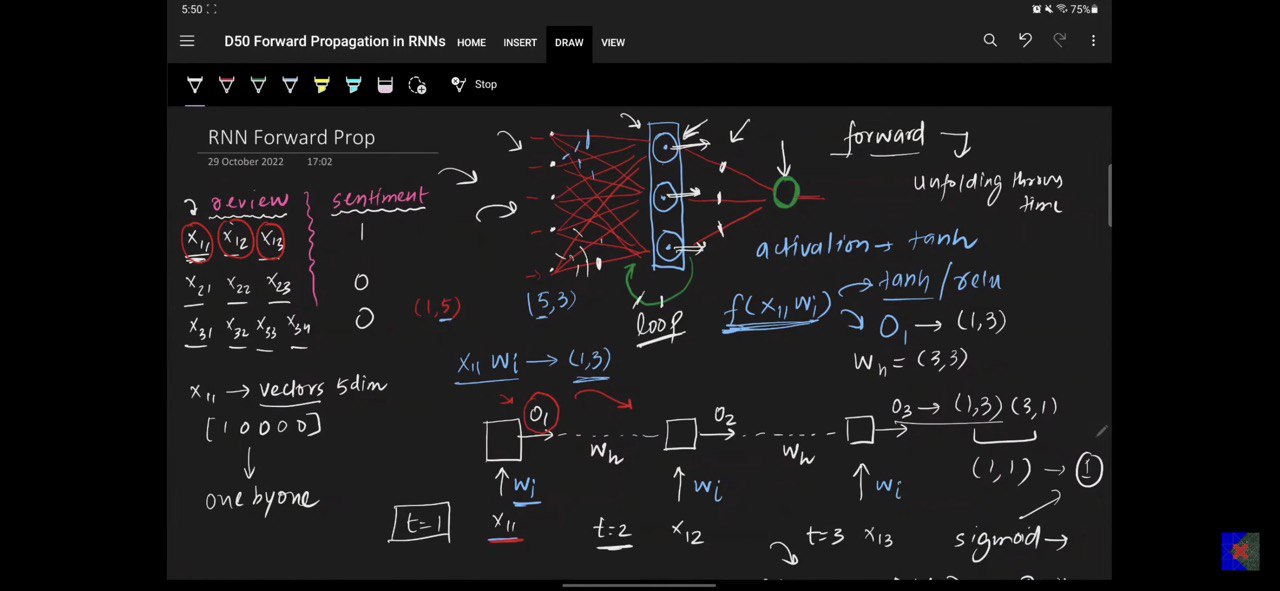 5:50
75%
D50 Forward Propagation in RNNs HOME INSERT DRAW VIEW
Stop
RNN Forward Prop
29 October 2022 17:02
review sentiment
x11 x12 x13 1
x21 x22 x23 0
x31 x32 x33 x34 0
x11 → vectors 5dim
[1 0 0 0 0]
one by one
(1,5) (5,3)
loop
forward
unfolding throus
time
activation → tanh
f(x11 wi) tanh/relu
O1 → (1,3)
Wh = (3,3)
x11 wi → (1,3)
O1 O2 O3 → (1,3) (3,1)
Wh Wh
(1,1) → 1
wi wi wi
t=1 x11 t=2 x12 t=3 x13
sigmoid →